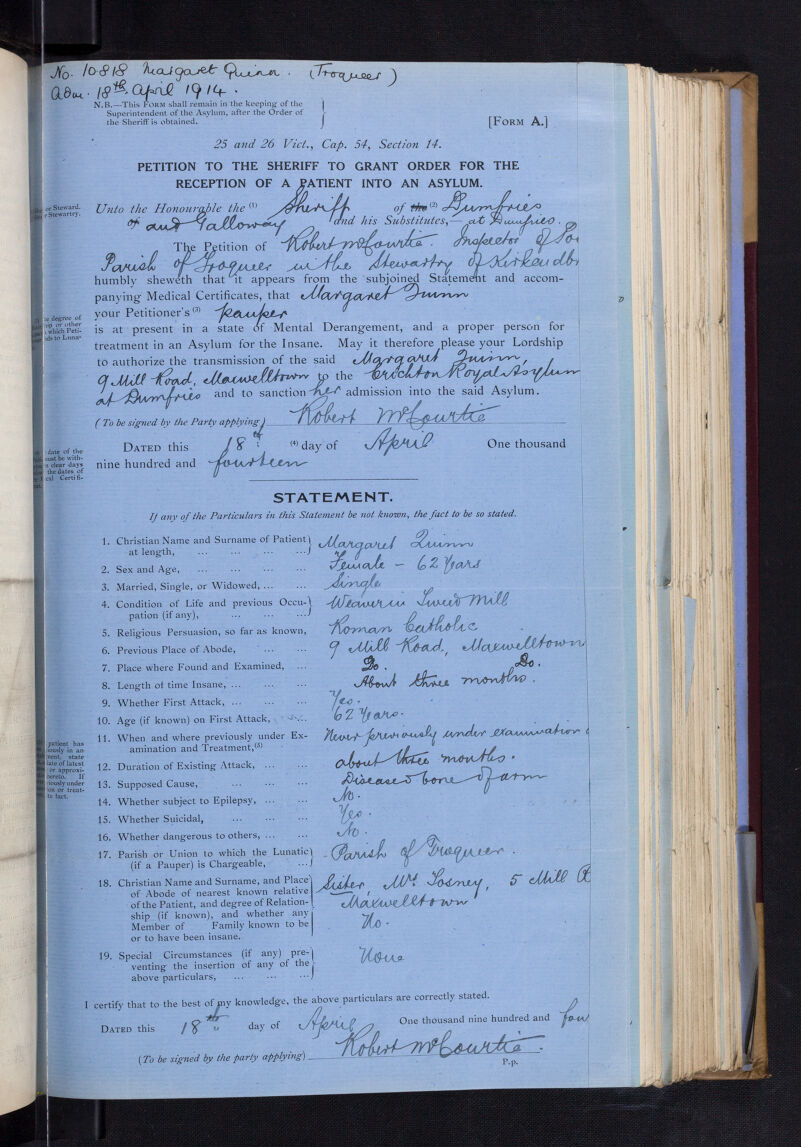 No. 10818 Margaret Quinn. (Troqueer)
Adm. 18th. April 1914.
N.B.—This Form shall remain in the keeping of the
Superintendent of the Asylum, after the Order of
the Sheriff is obtained.
[Form A.]
25 and 26 Vict., Cap. 54, Section 14.
PETITION TO THE SHERIFF TO GRANT ORDER FOR THE
RECEPTION OF A PATIENT INTO AN ASYLUM.
or Steward.
r Stewartry.
Unto the Honourable the (1) Sheriff of the (2) Dumfries
and Galloway and his Substitutes, at Dumfries.
The Petition of Robert McCourtie. Inspector of
Parish of Troqueer in the Stewartry of
humbly sheweth that it appears from the subjoined Statement and accom-
panying Medical Certificates, that Margaret Quinn
your Petitioner's (3) pauper
degree of
or other
which Peti-
is at present in a state of Mental Derangement, and a proper person for
treatment in an Asylum for the Insane. May it therefore please your Lordship
to authorize the transmission of the said Margaret Quinn,
9 Mill Road, Maxwelltown to the Crichton Royal Asylum
at Dumfries and to sanction her admission into the said Asylum.
(To be signed by the Party applying) Robert McCourtie
date of the
must be with-
clear days
the dates of
Certifi-
DATED this 18th (4) day of April One thousand
nine hundred and fourteen
STATEMENT.
If any of the Particulars in this Statement be not known, the fact to be so stated.
1. Christian Name and Surname of Patient at length, ... Margaret Quinn
2. Sex and Age, ... Female - 62 Years
3. Married, Single, or Widowed, ... Single
4. Condition of Life and previous Occu- Weaver in Tweed Mill
pation (if any), ...
5. Religious Persuasion, so far as known, Roman Catholic
6. Previous Place of Abode, ... 9 Mill Road, Maxwelltown
7. Place where Found and Examined, ... Do. Do.
8. Length of time Insane, ... About three months.
9. Whether First Attack, ... Yes.
10. Age (if known) on First Attack, ... 62 Years.
11. When and where previously under Ex- Never previously under examination
amination and Treatment,(5)
patient has
12. Duration of Existing Attack, ... about three months.
13. Supposed Cause, ... Diseased bone of arm
14. Whether subject to Epilepsy, ... No.
15. Whether Suicidal, ... Yes.
16. Whether dangerous to others, ... No.
17. Parish or Union to which the Lunatic Parish of Troqueer.
(if a Pauper) is Chargeable, ...
18. Christian Name and Surname, and Place Sister, Mrs Losney, 5 Mill
of Abode of nearest known relative Maxwelltown
of the Patient, and degree of Relation-
ship (if known), and whether any No.
Member of Family known to be
or to have been insane.
19. Special Circumstances (if any) pre- None
venting the insertion of any of the
above particulars, ...
I certify that to the best of my knowledge, the above particulars are correctly stated.
DATED this 18th day of April One thousand nine hundred and
(To be signed by the party applying) Robert McCourtie.
P.p.